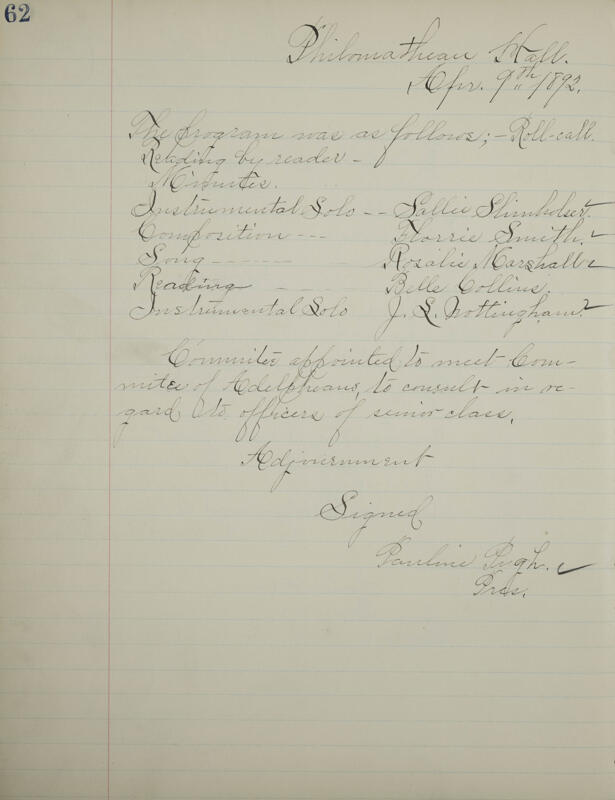 62
Philomathean Hall.
Apr. 9th 1892.
The program was as follows; - Roll-call.
Reading by reader -
Minutes.
Instrumental Solo -- Sallie Slinholser
Composition --- Florrie Smith.
Song ------ Rosalie Marshall
Reading --- Belle Collins.
Instrumental Solo J. L. Nottingham.
Commitee appointed to meet Com-
mitee of Adelpheans, to consult in re-
gard to officers of senior class.
Adjournment
Signed
Pauline Pugh.
Pres.